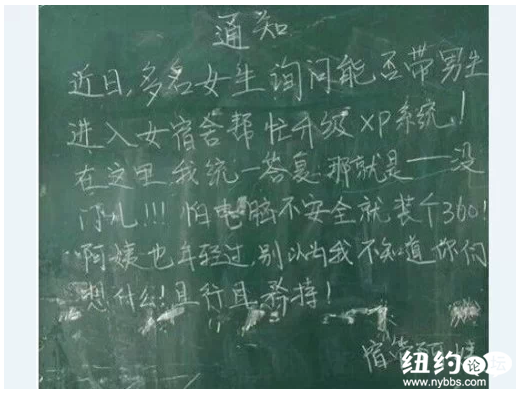 通知
近日,多名女生询问能否带男生
进入女宿舍帮忙升级XP系统!
在这里我统一答复.那就是——没
门儿!!! 怕电脑不安全就装个360!
啊姨也年轻过,别以为我不知道你们
想什么!且行且矜持!
宿管
纽约论坛
www.nybbs.com